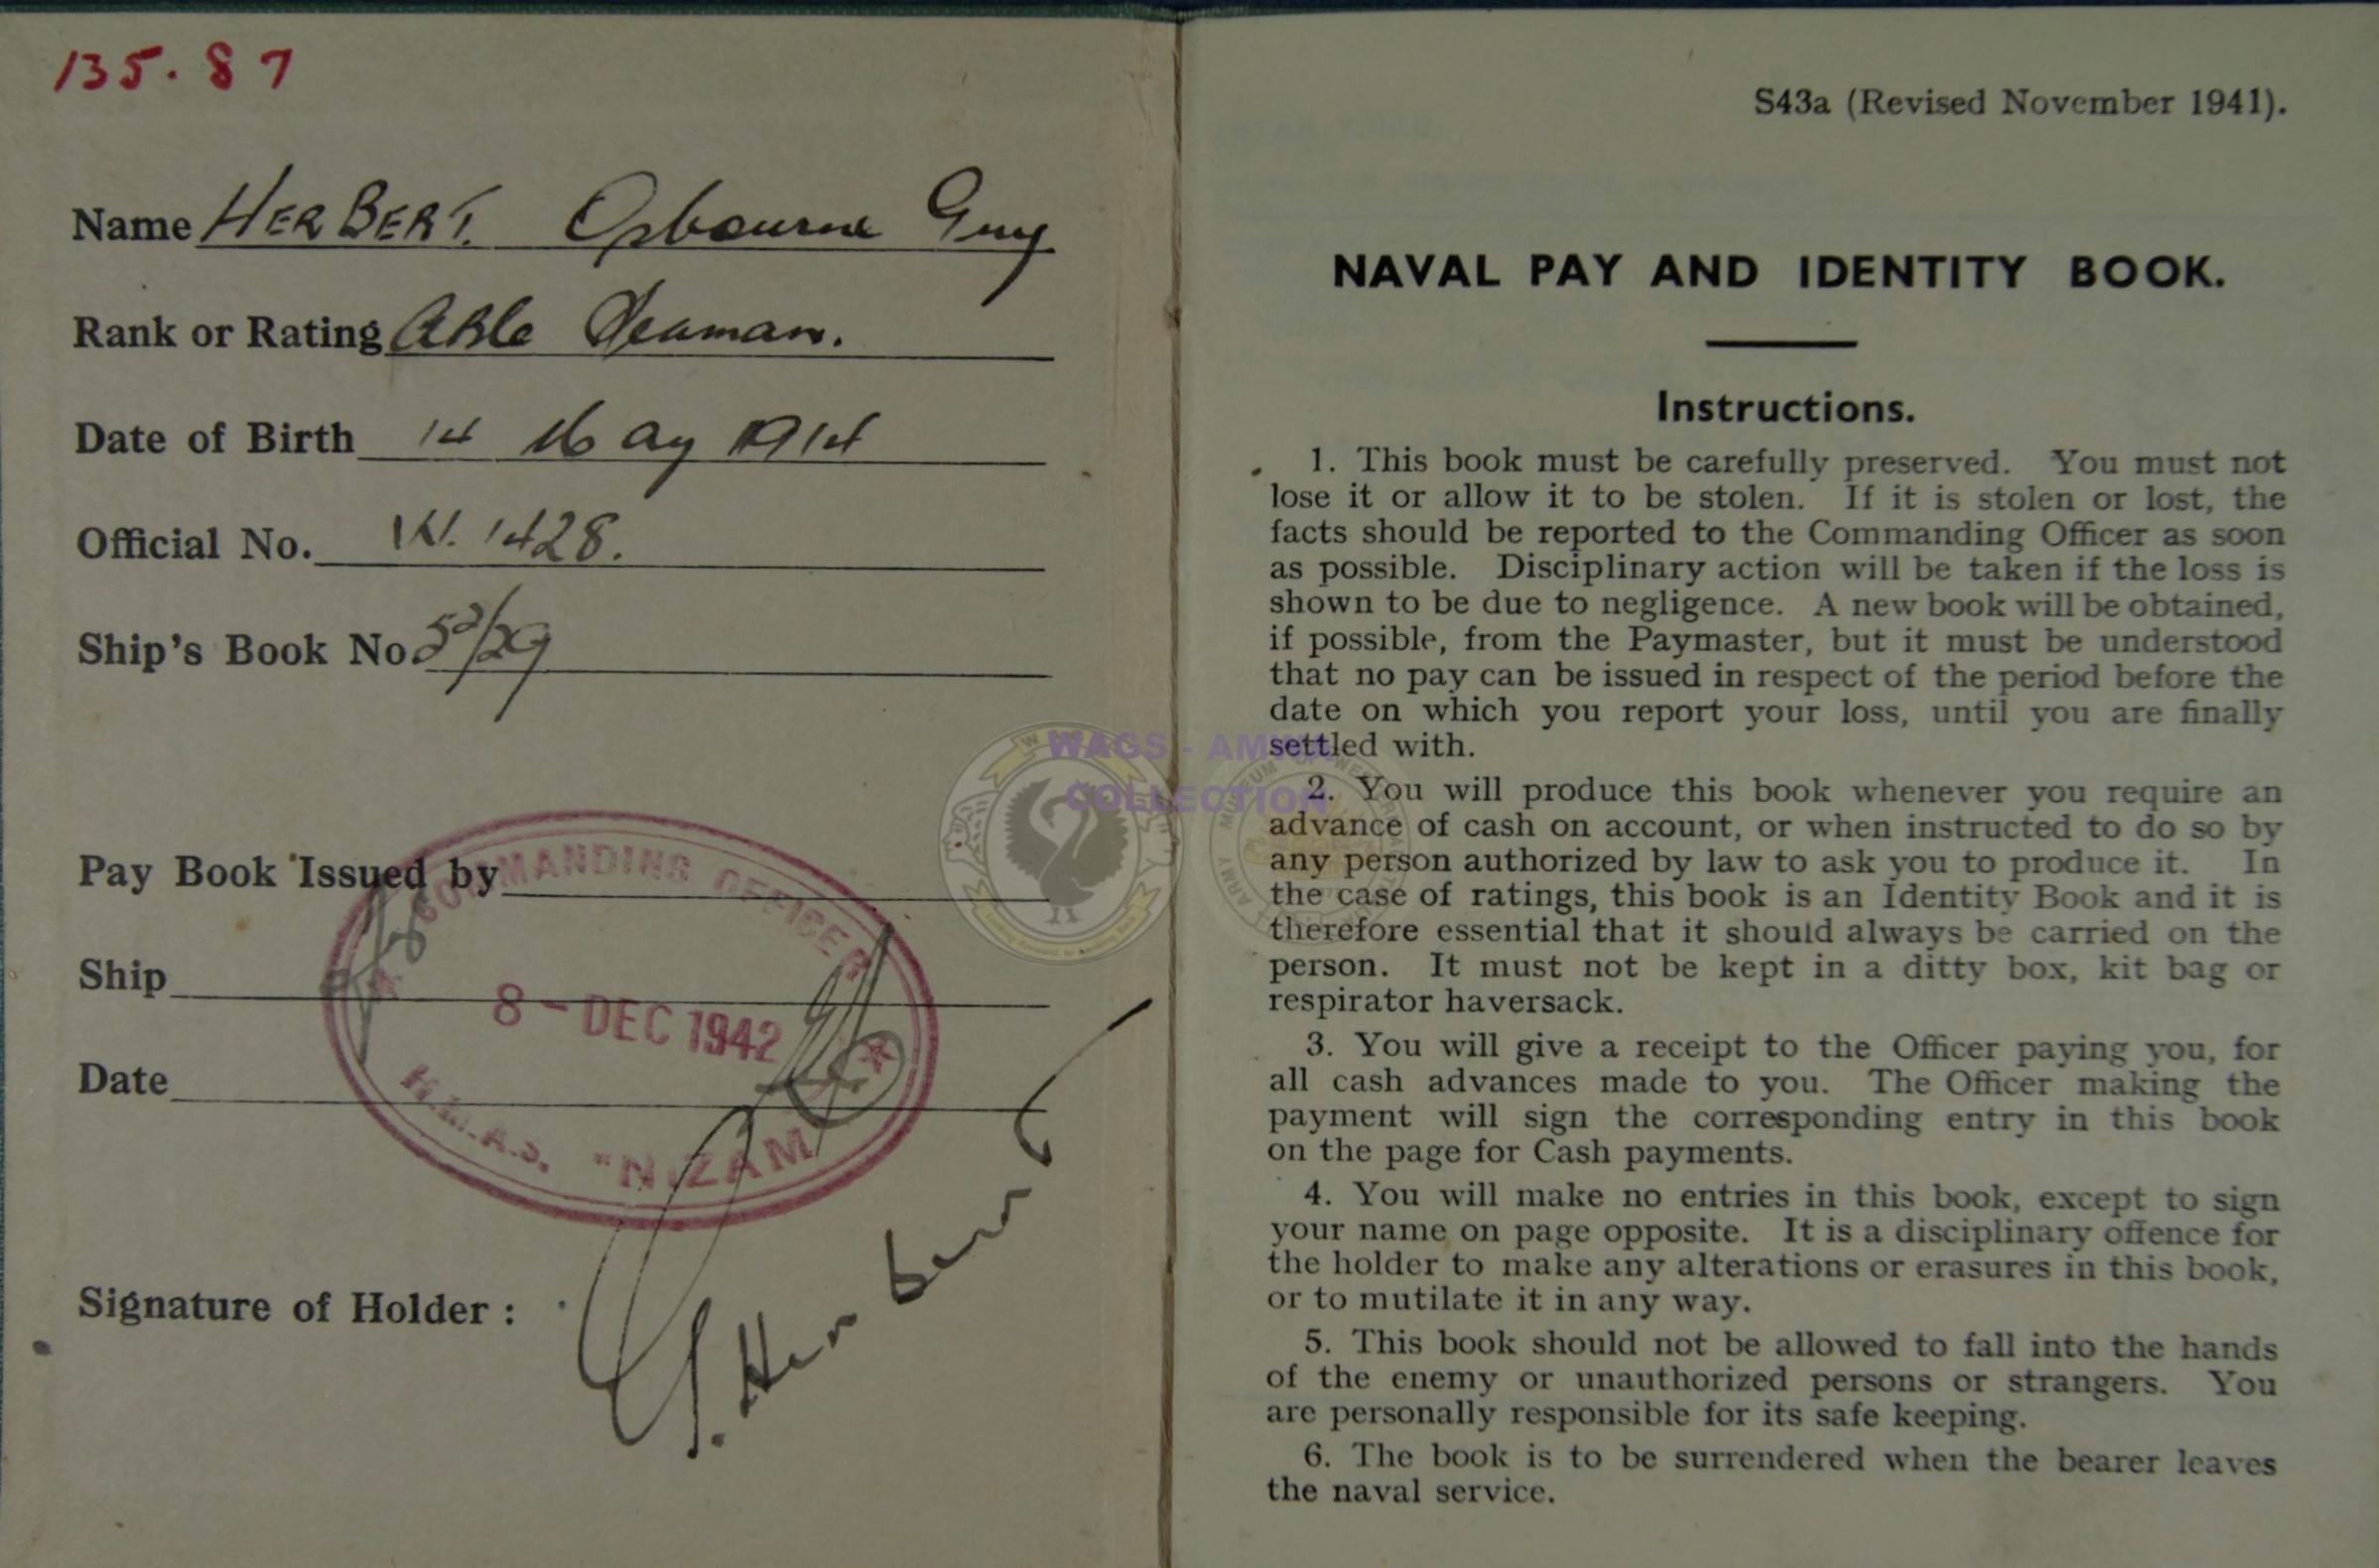 135.87
Name HERBERT. Osbourne Guy
Rank or Rating Able Seaman.
Date of Birth 14 May 1914
Official No. W. 1428.
Ship's Book No. 52/29
Pay Book Issued by
Ship
Date
COMMANDING OFFICER
8 - DEC 1942
H.M.A.S. "NIZAM"
Signature of Holder :
G. Herbert
S43a (Revised November 1941).
NAVAL PAY AND IDENTITY BOOK.
Instructions.
1. This book must be carefully preserved. You must not
lose it or allow it to be stolen. If it is stolen or lost, the
facts should be reported to the Commanding Officer as soon
as possible. Disciplinary action will be taken if the loss is
shown to be due to negligence. A new book will be obtained,
if possible, from the Paymaster, but it must be understood
that no pay can be issued in respect of the period before the
date on which you report your loss, until you are finally
settled with.
2. You will produce this book whenever you require an
advance of cash on account, or when instructed to do so by
any person authorized by law to ask you to produce it. In
the case of ratings, this book is an Identity Book and it is
therefore essential that it should always be carried on the
person. It must not be kept in a ditty box, kit bag or
respirator haversack.
3. You will give a receipt to the Officer paying you, for
all cash advances made to you. The Officer making the
payment will sign the corresponding entry in this book
on the page for Cash payments.
4. You will make no entries in this book, except to sign
your name on page opposite. It is a disciplinary offence for
the holder to make any alterations or erasures in this book,
or to mutilate it in any way.
5. This book should not be allowed to fall into the hands
of the enemy or unauthorized persons or strangers. You
are personally responsible for its safe keeping.
6. The book is to be surrendered when the bearer leaves
the naval service.
WAGS - AMWA
COLLECTION